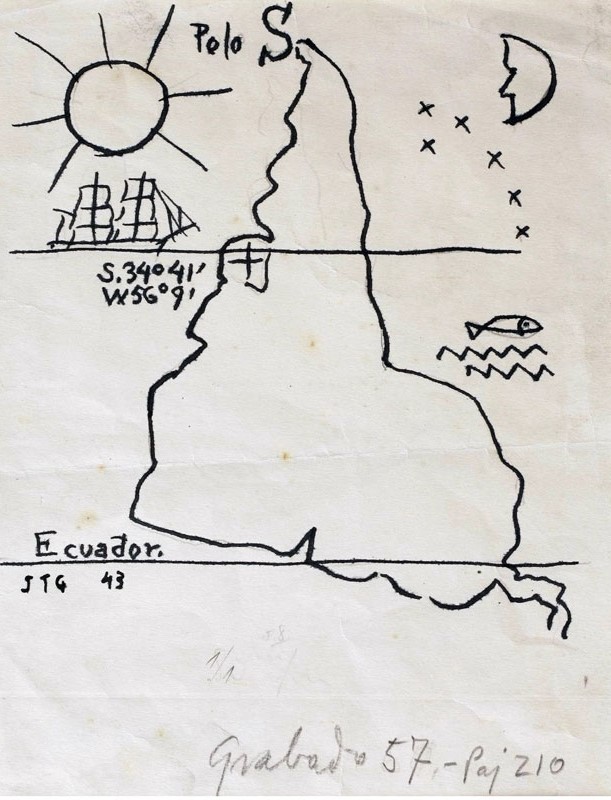 Polo S.
S. 34° 41'
W 56° 9'
Ecuador.
JTG 43
1/1
58
Grabado 57.- Paj 210